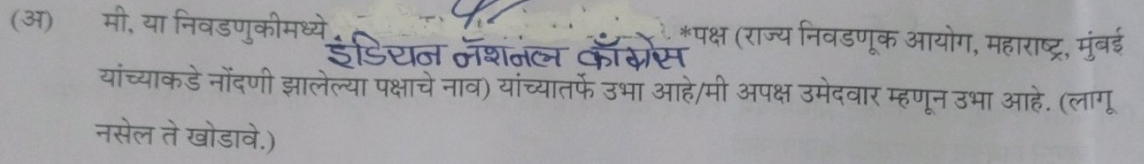 (अ) मी, या निवडणुकीमध्ये इंडियन नॅशनल काँग्रेस *पक्ष (राज्य निवडणूक आयोग, महाराष्ट्र, मुंबई
यांच्याकडे नोंदणी झालेल्या पक्षाचे नाव) यांच्यातर्फे उभा आहे/मी अपक्ष उमेदवार म्हणून उभा आहे. (लागू
नसेल ते खोडावे.)